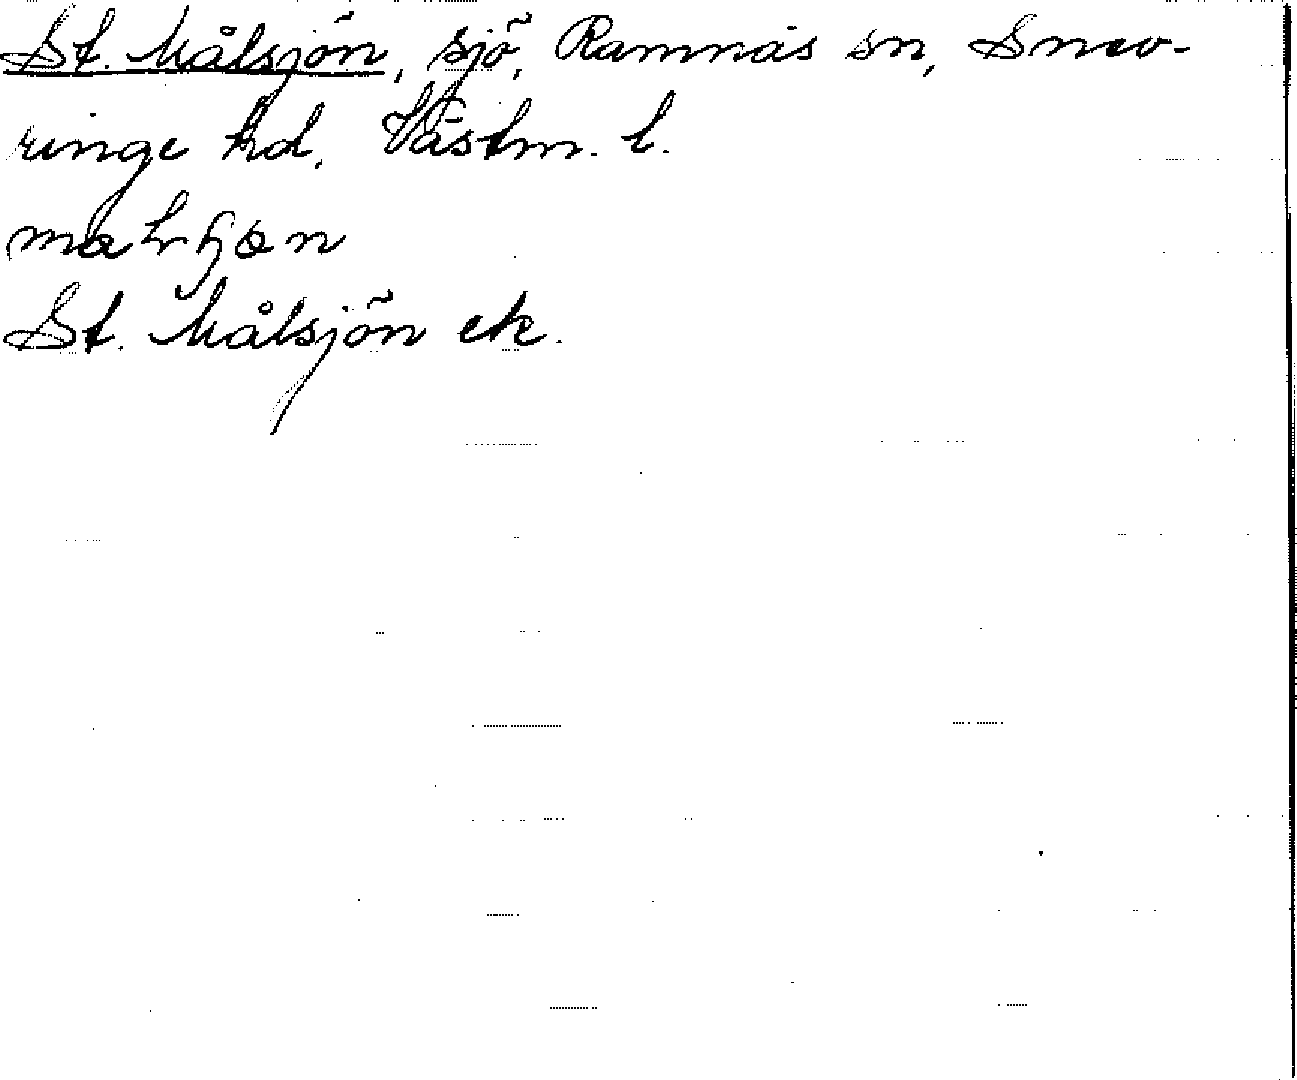 St. Målsjön, sjö, Ramnäs sn, Snev-
ringe hd, Västm. l.
St. Målsjön ek.